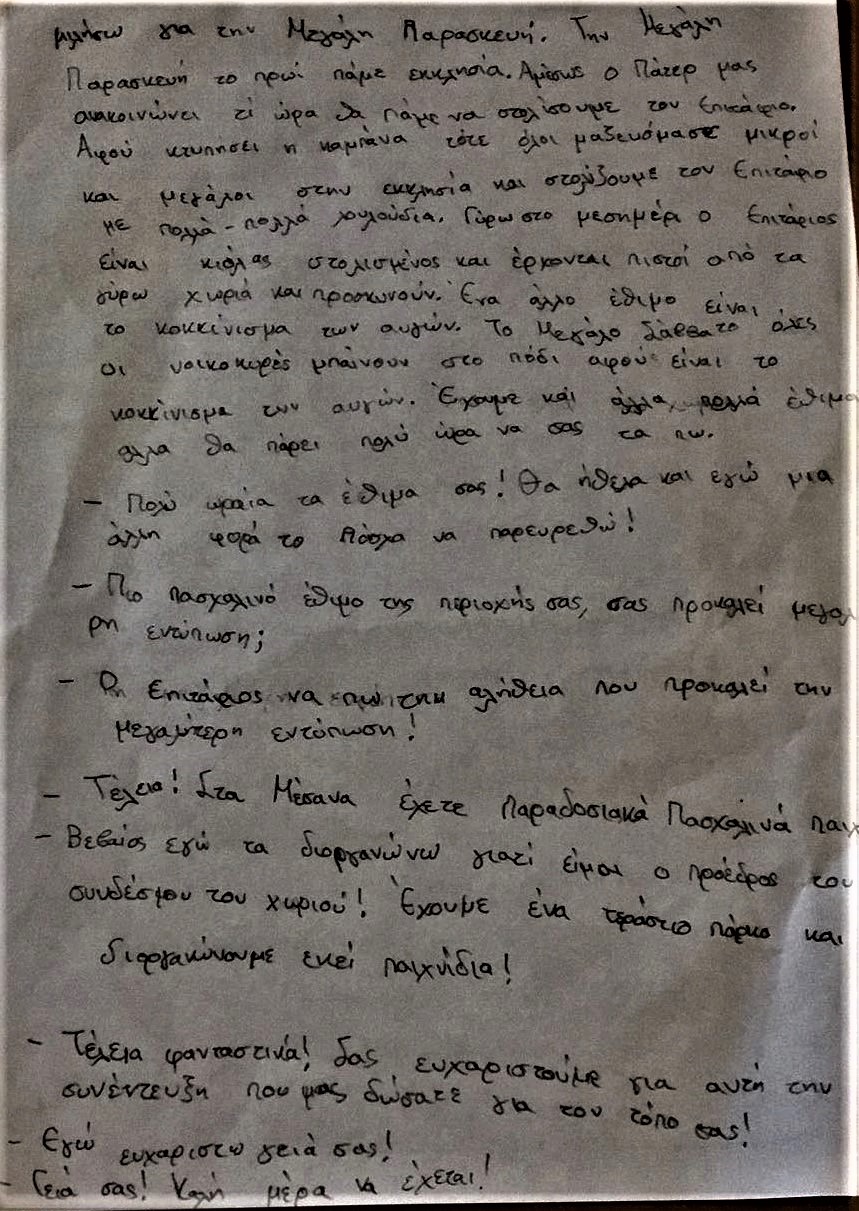 μιλήσω για την Μεγάλη Παρασκευή. Την Μεγάλη
Παρασκευή το πρωί πάμε εκκλησία. Αμέσως ο Πάτερ μας
ανακοινώνει τί ώρα θα πάμε να στολίσουμε τον Επιτάφιο.
Αφού κτυπήσει η καμπάνα τότε όλοι μαζευόμαστε μικροί
και μεγάλοι στην εκκλησία και στολίζουμε τον Επιτάφιο
με πολλά-πολλά λουλούδια. Γύρω στο μεσημέρι ο Επιτάφιος
είναι κιόλας στολισμένος και έρχονται πιστοί από τα
γύρω χωριά και προσκυνούν. Ένα άλλο έθιμο είναι
το κοκκίνισμα των αυγών. Το Μεγάλο Σάββατο όλες
οι νοικοκυρές μπαίνουν στο πόδι αφού είναι το
κοκκίνισμα των αυγών. Έχουμε και άλλα πολλά έθιμα
αλλα θα πάρει πολύ ώρα να σας τα πω.
- Πολύ ωραία τα έθιμα σας! Θα ήθελα και εγώ μια
άλλη φορά το Πάσχα να παρευρεθώ!
- Πιο πασχαλινό έθιμο της περιοχής σας, σας προκαλεί μεγαλ
ρη εντύπωση;
- Επιτάφιος να πω την αλήθεια που προκαλεί την
μεγαλύτερη εντύπωση!
- Τέλεια! Στα Μέσανα έχετε Παραδοσιακά Πασχαλινά παιχ
- Βεβαίος εγώ τα διοργανώνω γιατί είμαι ο πρόεδρος του
συνδέσμου του χωριού! Έχουμε ένα τεράστιο πάρκο και
διοργανώνουμε εκεί παιχνίδια!
- Τέλεια φανταστικά! Σας ευχαριστούμε για αυτή την
συνέντευξη που μας δώσατε για τον τόπο σας!
- Εγώ ευχαριστω γειά σας!
- Γειά σας! Καλή μέρα να έχεται!